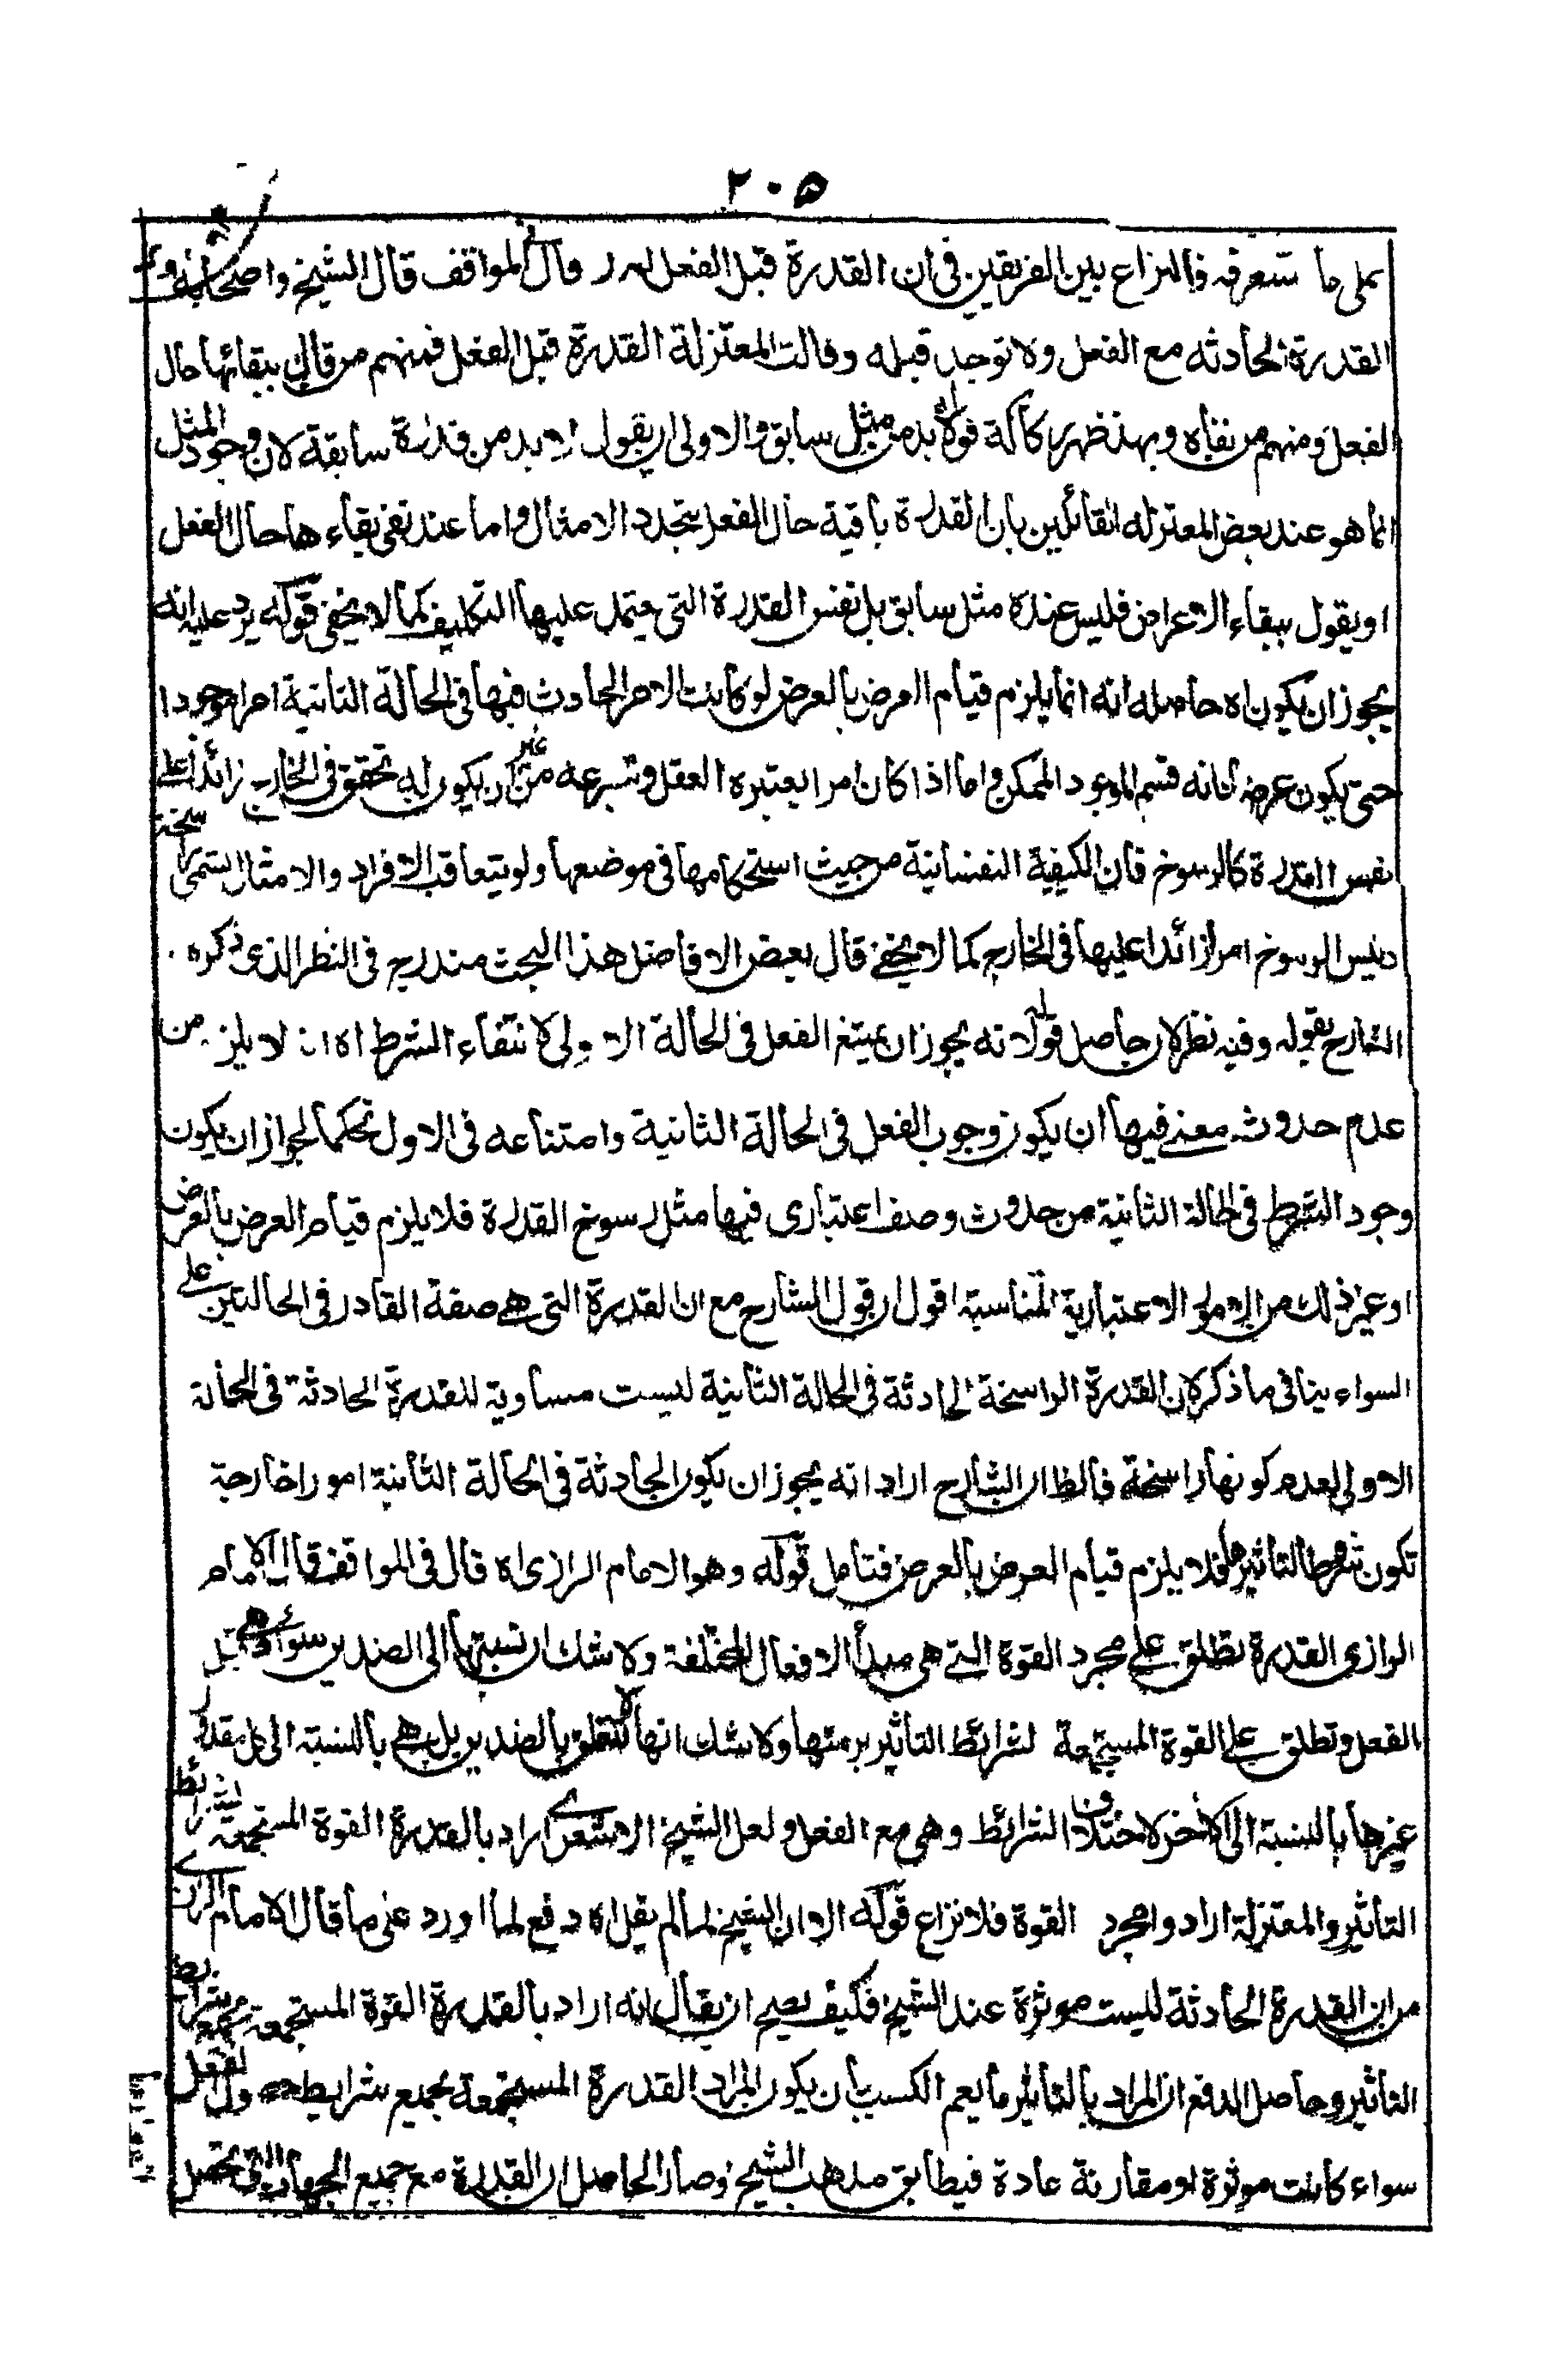 ٢٠٥
على ما ستعرفه فالنزاع بين الفريقين في ان القدرة قبل الفعل قال في المواقف قال الشيخ واصحابه
القدرة الحادثه مع الفعل ولا توجد قبله وقالت المعتزلة القدرة قبل الفعل فمنهم من قال ببقائها حال
الفعل ومنهم من نفاه وبهذ ظهر ركاكة قوله لا بد من مثل سابق والاولى ان يقول لا بد من قدرة سابقة لان وجود المثل
انما هو عند بعض المعتزله القائلين بان القدرة باقية حال الفعل بتجدد الامثال واما عند نفي بقاءها حال الفعل
او يقول ببقاء الاعراض فليس عنده مثل سابق بل نفس القدرة التي يعتمد عليها التكليف كما لا يخفى قوله يرد عليه انه
يجوز ان يكون اه حاصله انه انما يلزم قيام العرض بالعرض لو كانت الامر الحادث فيها في الحالة الثانية امرا موجودا
حتى يكون عرضا لانه قسم الموجود الممكن واما اذا كان امرا يعتبره العقل وتنتزعه من غير ان يكون له تحقق في الخارج زائدا على
نفس القدرة كالرسوخ فان الكيفية النفسانية من حيث استحكامها في موضعها ولو بتعاقب الافراد والامثال تسمى راسخة
وليس الرسوخ امرا زائدا عليها في الخارج كما لا يخفى قال بعض الافاضل هذا البحث مندرج في النظر الذي ذكره
الشارح بقوله وفيه نظر لان حاصل قوله لانه يجوز ان يمتنع الفعل في الحالة الاولى لانتفاء الشرط اه انه لا يلزم من
عدم حدوث معنى فيها ان يكون وجوب الفعل في الحالة الثانية وامتناعه في الاول تحكما لجواز ان يكون
وجود الشرط في الحالة الثانية من حدوث وصف اعتباري فيها مثل رسوخ القدرة فلا يلزم قيام العرض بالعرض
او غير ذلك من الامور الاعتبارية المناسبة اقول ان قول الشارح مع ان القدرة التي هي صفة القادر في الحالتين على
السواء ينافي ما ذكر لان القدرة الراسخة الحادثة في الحالة الثانية ليست مساوية للقدرة الحادثة في الحالة
الاولى لعدم كونها راسخة فالظ ان الشارح اراد انه يجوز ان يكون الحادثة في الحالة الثانية امورا خارجية
تكون شرطا لتاثيرها فلا يلزم قيام العرض بالعرض فتامل قوله وهو الامام الرازي اه قال في المواقف قال الامام
الرازي القدرة تطلق على مجرد القوة التي هي مبدأ الافعال المختلفة ولا شك ان نسبتها الى الضدين سواء وهي قبل
الفعل وتطلق على القوة المستجمعة لشرائط التأثير برمتها ولا شك انها لا تتعلق بالضدين بل هي بالنسبة الى كل مقدور
غيرها بالنسبة الى الآخر لاختلاف الشرائط وهي مع الفعل ولعل الشيخ الاشعري اراد بالقدرة القوة المستجمعة لشرائط
التأثير والمعتزلة ارادوا مجرد القوة فلا نزاع قوله الا ان الشيخ لما لم يقل اه دفع لما اورد على ما قال الامام الرازي
من ان القدرة الحادثة ليست موثرة عند الشيخ فكيف يصح ان يقال انه اراد بالقدرة القوة المستجمعة لشرائط
التاثير وحاصل الدفع ان المراد بالتاثير ما يعم الكسب بان يكون المراد القدرة المستجمعة بجميع شرايط حصول الفعل
سواء كانت موثرة او مقارنة عادة فيطابق مذهب الشيخ وصار الحاصل ان القدرة مع جميع الجهات التي يحصل